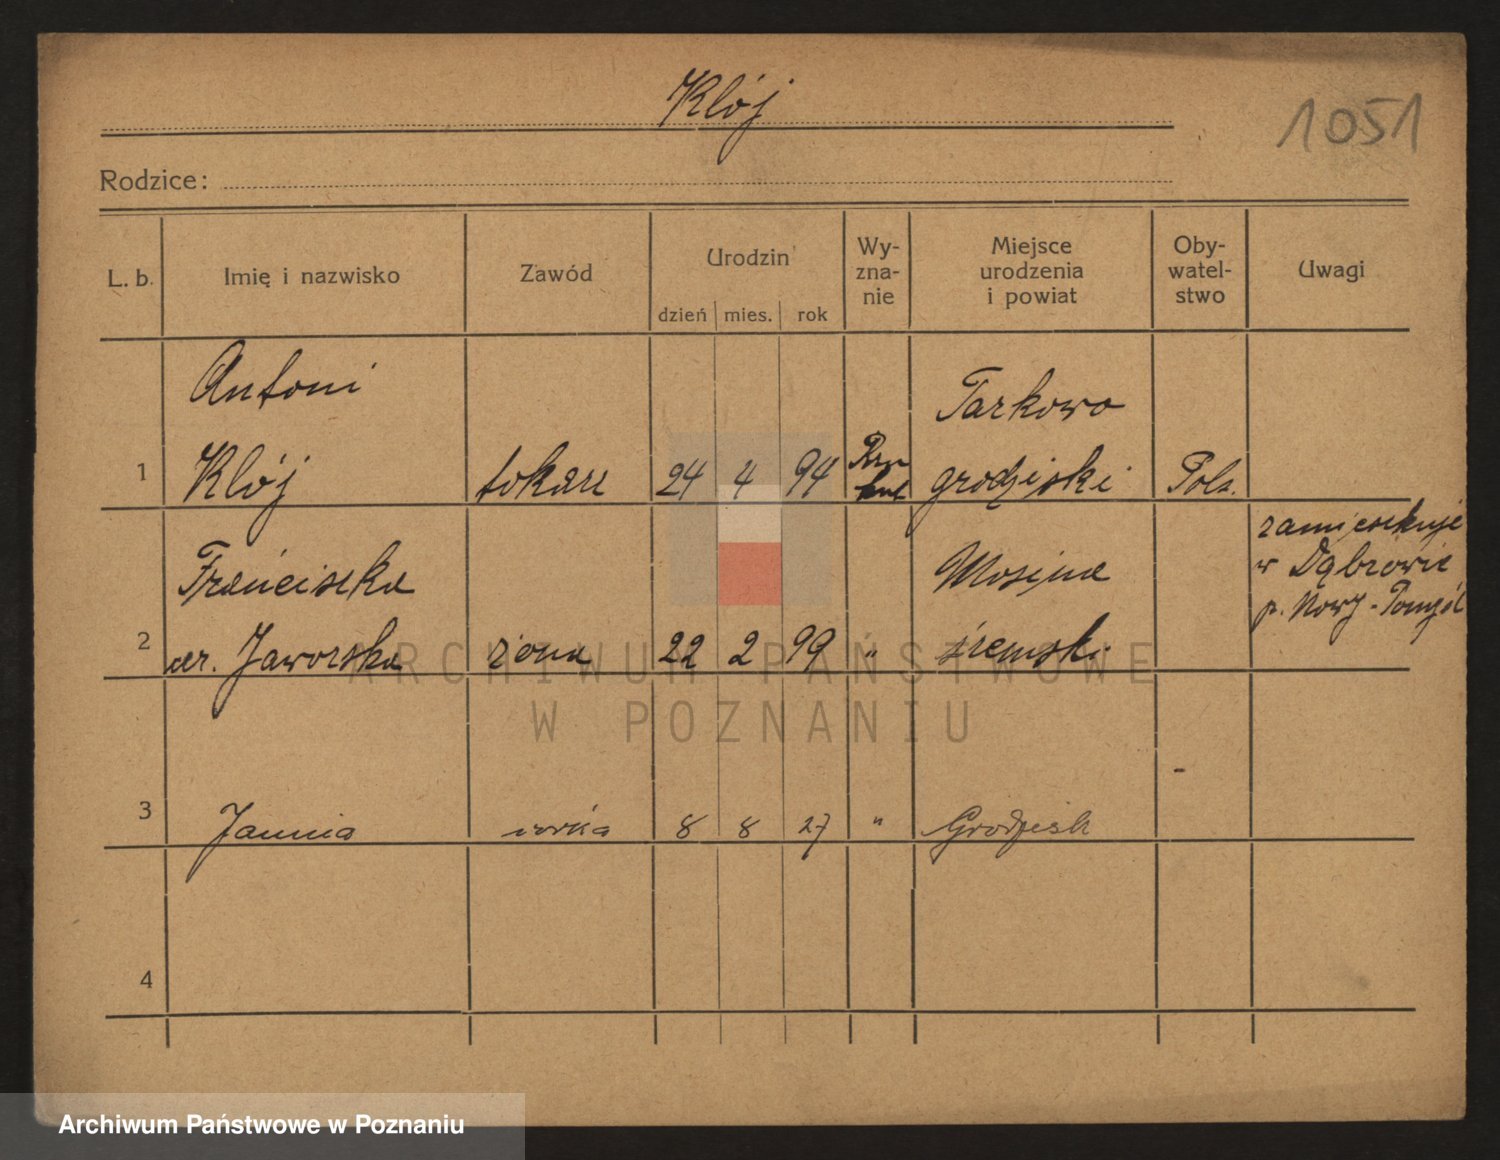 Klój
1051
Rodzice:
L. b. Imię i nazwisko Zawód Urodzin Wy- Miejsce Oby- Uwagi
zna- urodzenia watel-
nie i powiat stwo
dzień mies. rok
Antoni Tarkowo
1 Klój tokarz 24 4 94 grodziski Pols.
zamieszkuje
w Dąbrowie
p. Nowy-Tomyśl
Franciszka Mosina
2 ur. Jaworska żona 22 2 99 " śremski
ARCHIWUM PAŃSTWOWE
W POZNANIU
3 Janina córka 8 8 27 " Grodzisk -
4
Archiwum Państwowe w Poznaniu